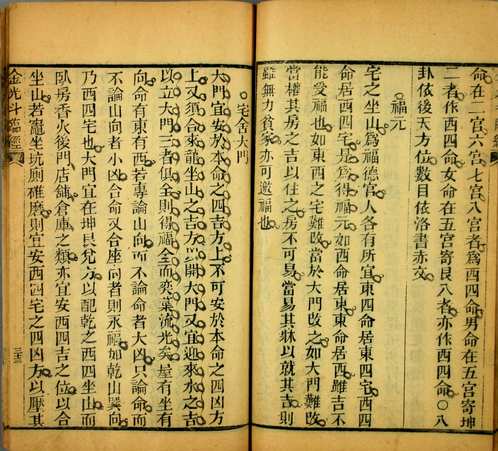 命在二宮六宮七宮八宮者為西四命男命在五宮寄坤
二者作西四命女命在五宮寄艮八者亦作西四命〇八
卦依後天方位數目依洛書亦交
福元
宅之坐山為福德宮人各有所宜東四命居東四宅西四
命居西四宅是為得福元如西命居東東命居西雖吉不
能受福也如東西之宅難改當於大門改之如大門難改
當權其房之吉以住之房不可易當易其牀以就其吉則
雖無力貧家亦可邀福也
宅舍大門
大門宜安於本命之四吉方上不可安於本命之四凶方
上又須合來龍坐山之吉方以開大門又宜迎來水之吉
以立大門三者俱全則得福全而奕葉流光矣屋有坐有
向命有東有西若專論山向而不論命者大凶只論命而
不論山向者小凶合命又合座向者則永福如乾山巽向
乃西四宅也大門宜在坤艮兌方以配乾之西四坐山而
臥房香火後門店鋪倉庫之類亦宜安西四吉之位以合
坐山若竈坐坑厠碓磨則宜安西四宅之四凶方以壓其
金光斗臨經